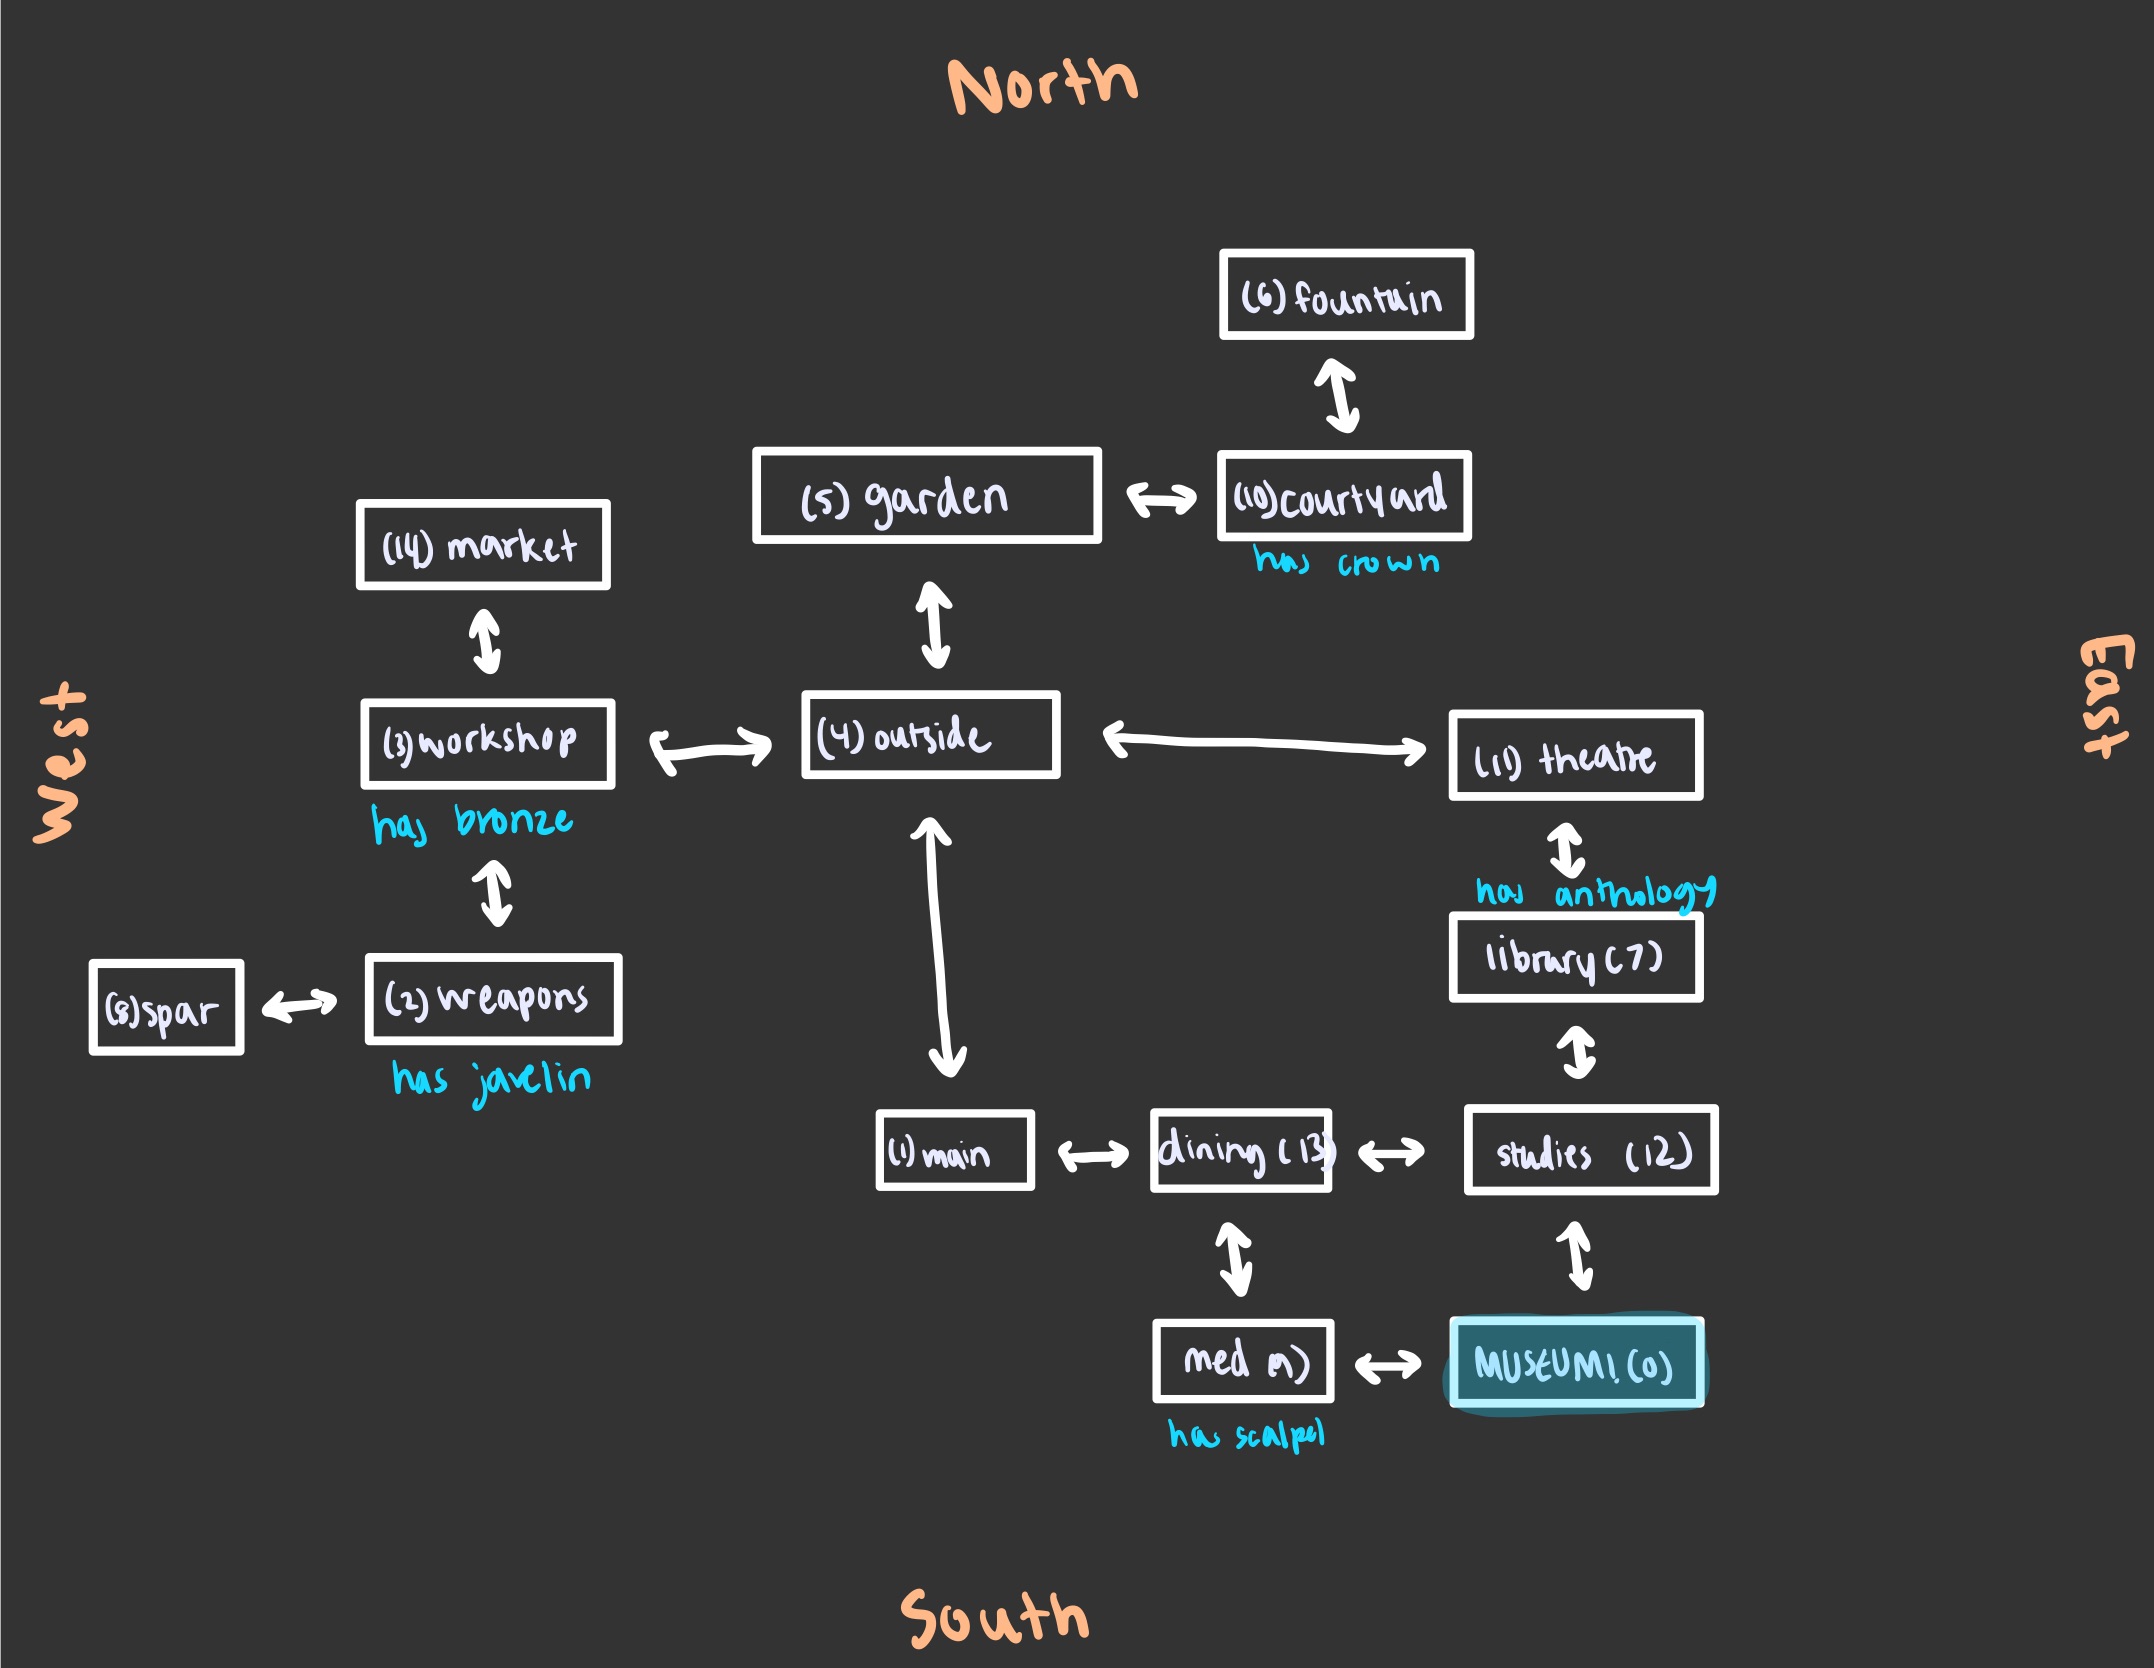 North
(6) fountain
(5) garden
(10) courtyard
has crown
(14) market
West
East
(3) workshop
has bronze
(4) outside
(11) theatre
has anthology
library (7)
(8) spar
(2) weapons
has javelin
(1) main
dining (13)
studies (12)
med
MUSEUM! (0)
has scalpel
South